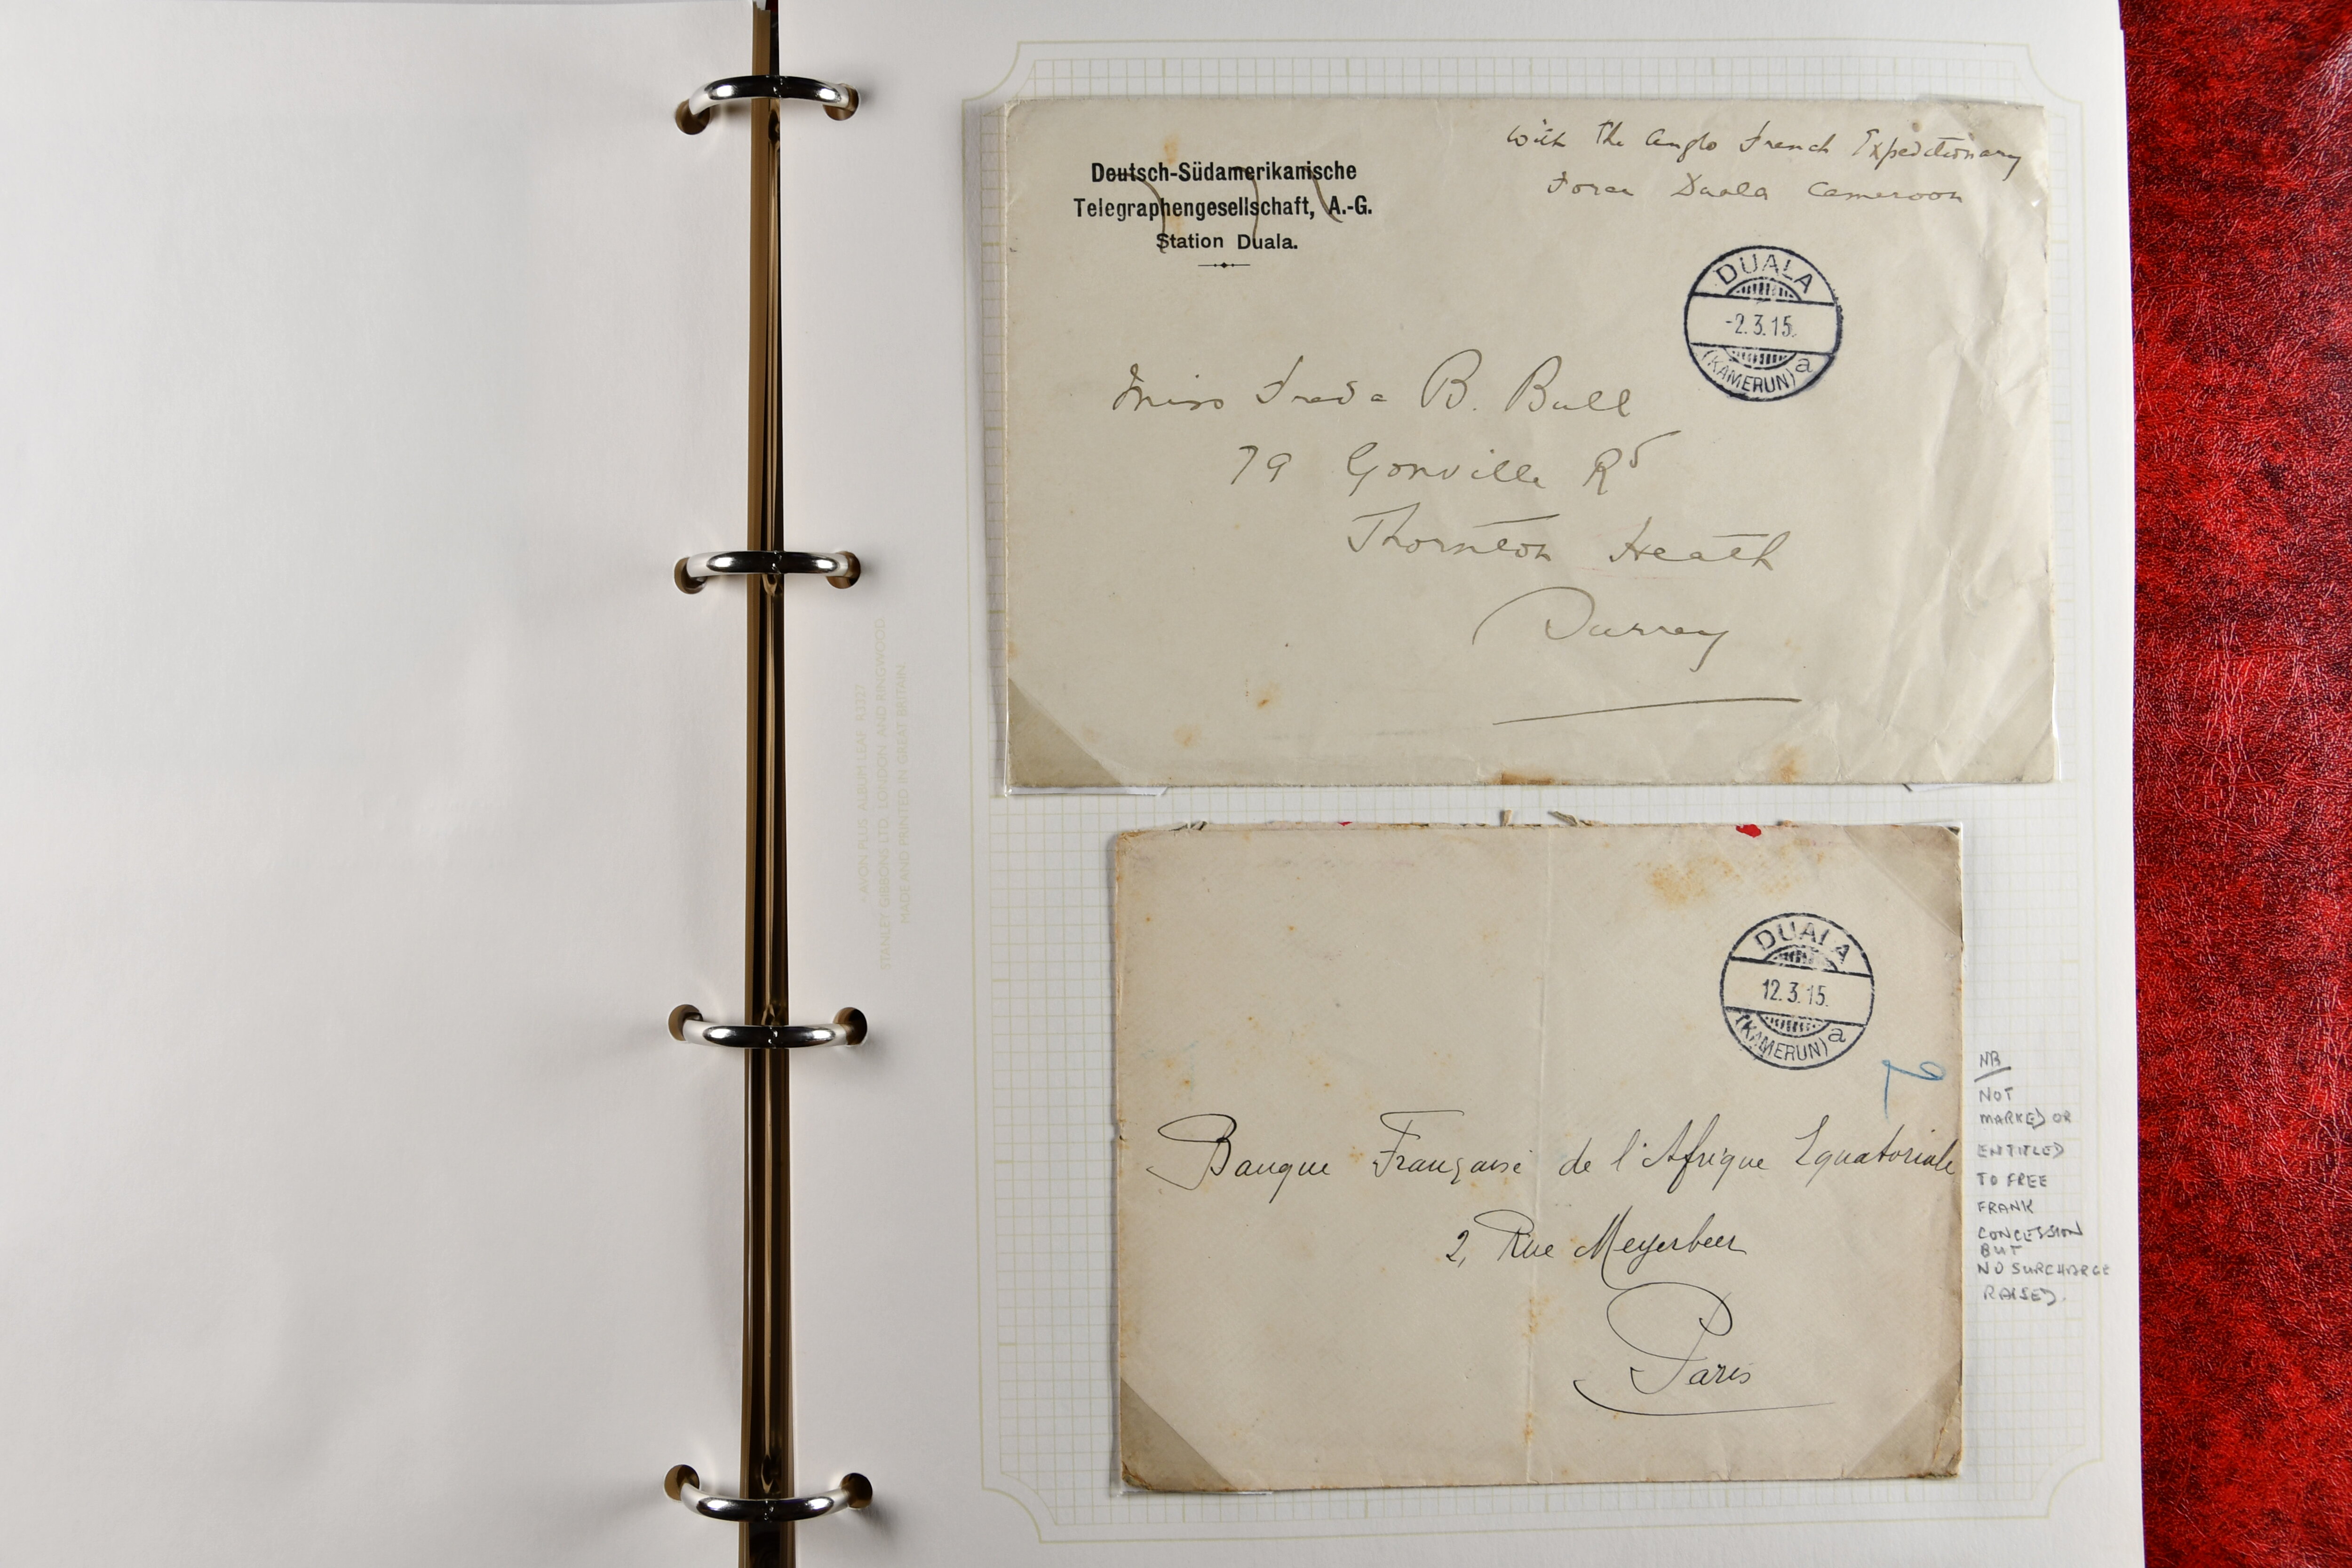 Deutsch-Südamerikanische
Telegraphengesellschaft, A.-G.
Station Duala.
With the Anglo French Expeditionary
Force Duala Cameroon
DUALA
-2.3.15.
(KAMERUN) a
Miss Freda B. Bull
79 Gonville Rd
Thornton Heath
Surrey
DUALA
12.3.15.
(KAMERUN) a
Banque Française de l'Afrique Equatoriale
2, Rue Meyerbeer
Paris
NB
NOT
MARKED OR
ENTITLED
TO FREE
FRANK
CONCESSION
BUT
NO SURCHARGE
RAISED.
AVON PLUS ALBUM LEAF R3327
STANLEY GIBBONS LTD. LONDON AND RINGWOOD.
MADE AND PRINTED IN GREAT BRITAIN.